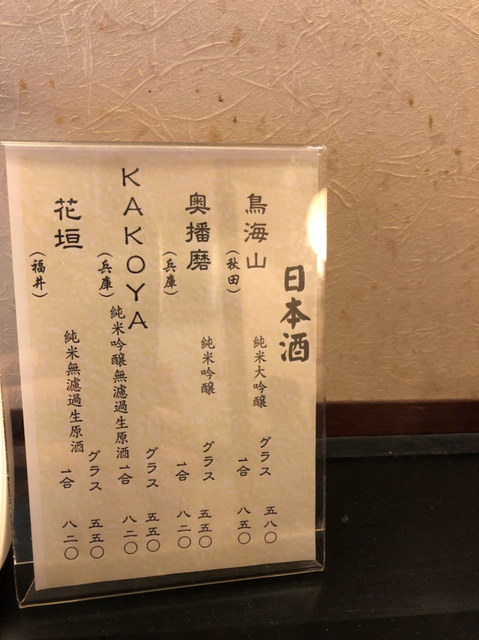 日本酒
鳥海山
(秋田)
純米大吟醸
グラス 五八〇
一合 八五〇
奥播磨
(兵庫)
純米吟醸
グラス 五五〇
一合 八二〇
KAKOYA
(兵庫)
純米吟醸無濾過生原酒
グラス 五五〇
一合 八二〇
花垣
(福井)
純米無濾過生原酒
グラス 五五〇
一合 八二〇